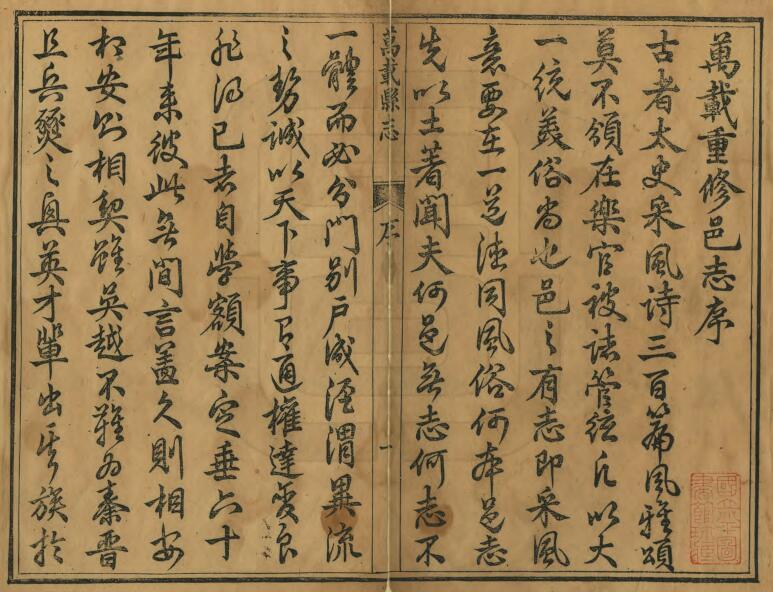 萬載重修邑志序
古者太史采風詩三百篇風雅頌
莫不領在樂官被諸管弦凡以大
一統義俗尚也邑之有志即采風
意要在一道德同風俗何本邑志
先以土著聞夫何邑無志何志不
萬載縣志 序 一
一體而必分門別戶減涇渭異流
之勢誠以天下事有通權達變良
非得已者自學額案定垂六十
年來彼此無間言蓋久則相安
相安則相契雖吳越不難為秦晉
且兵燹之具英才輩出民族於